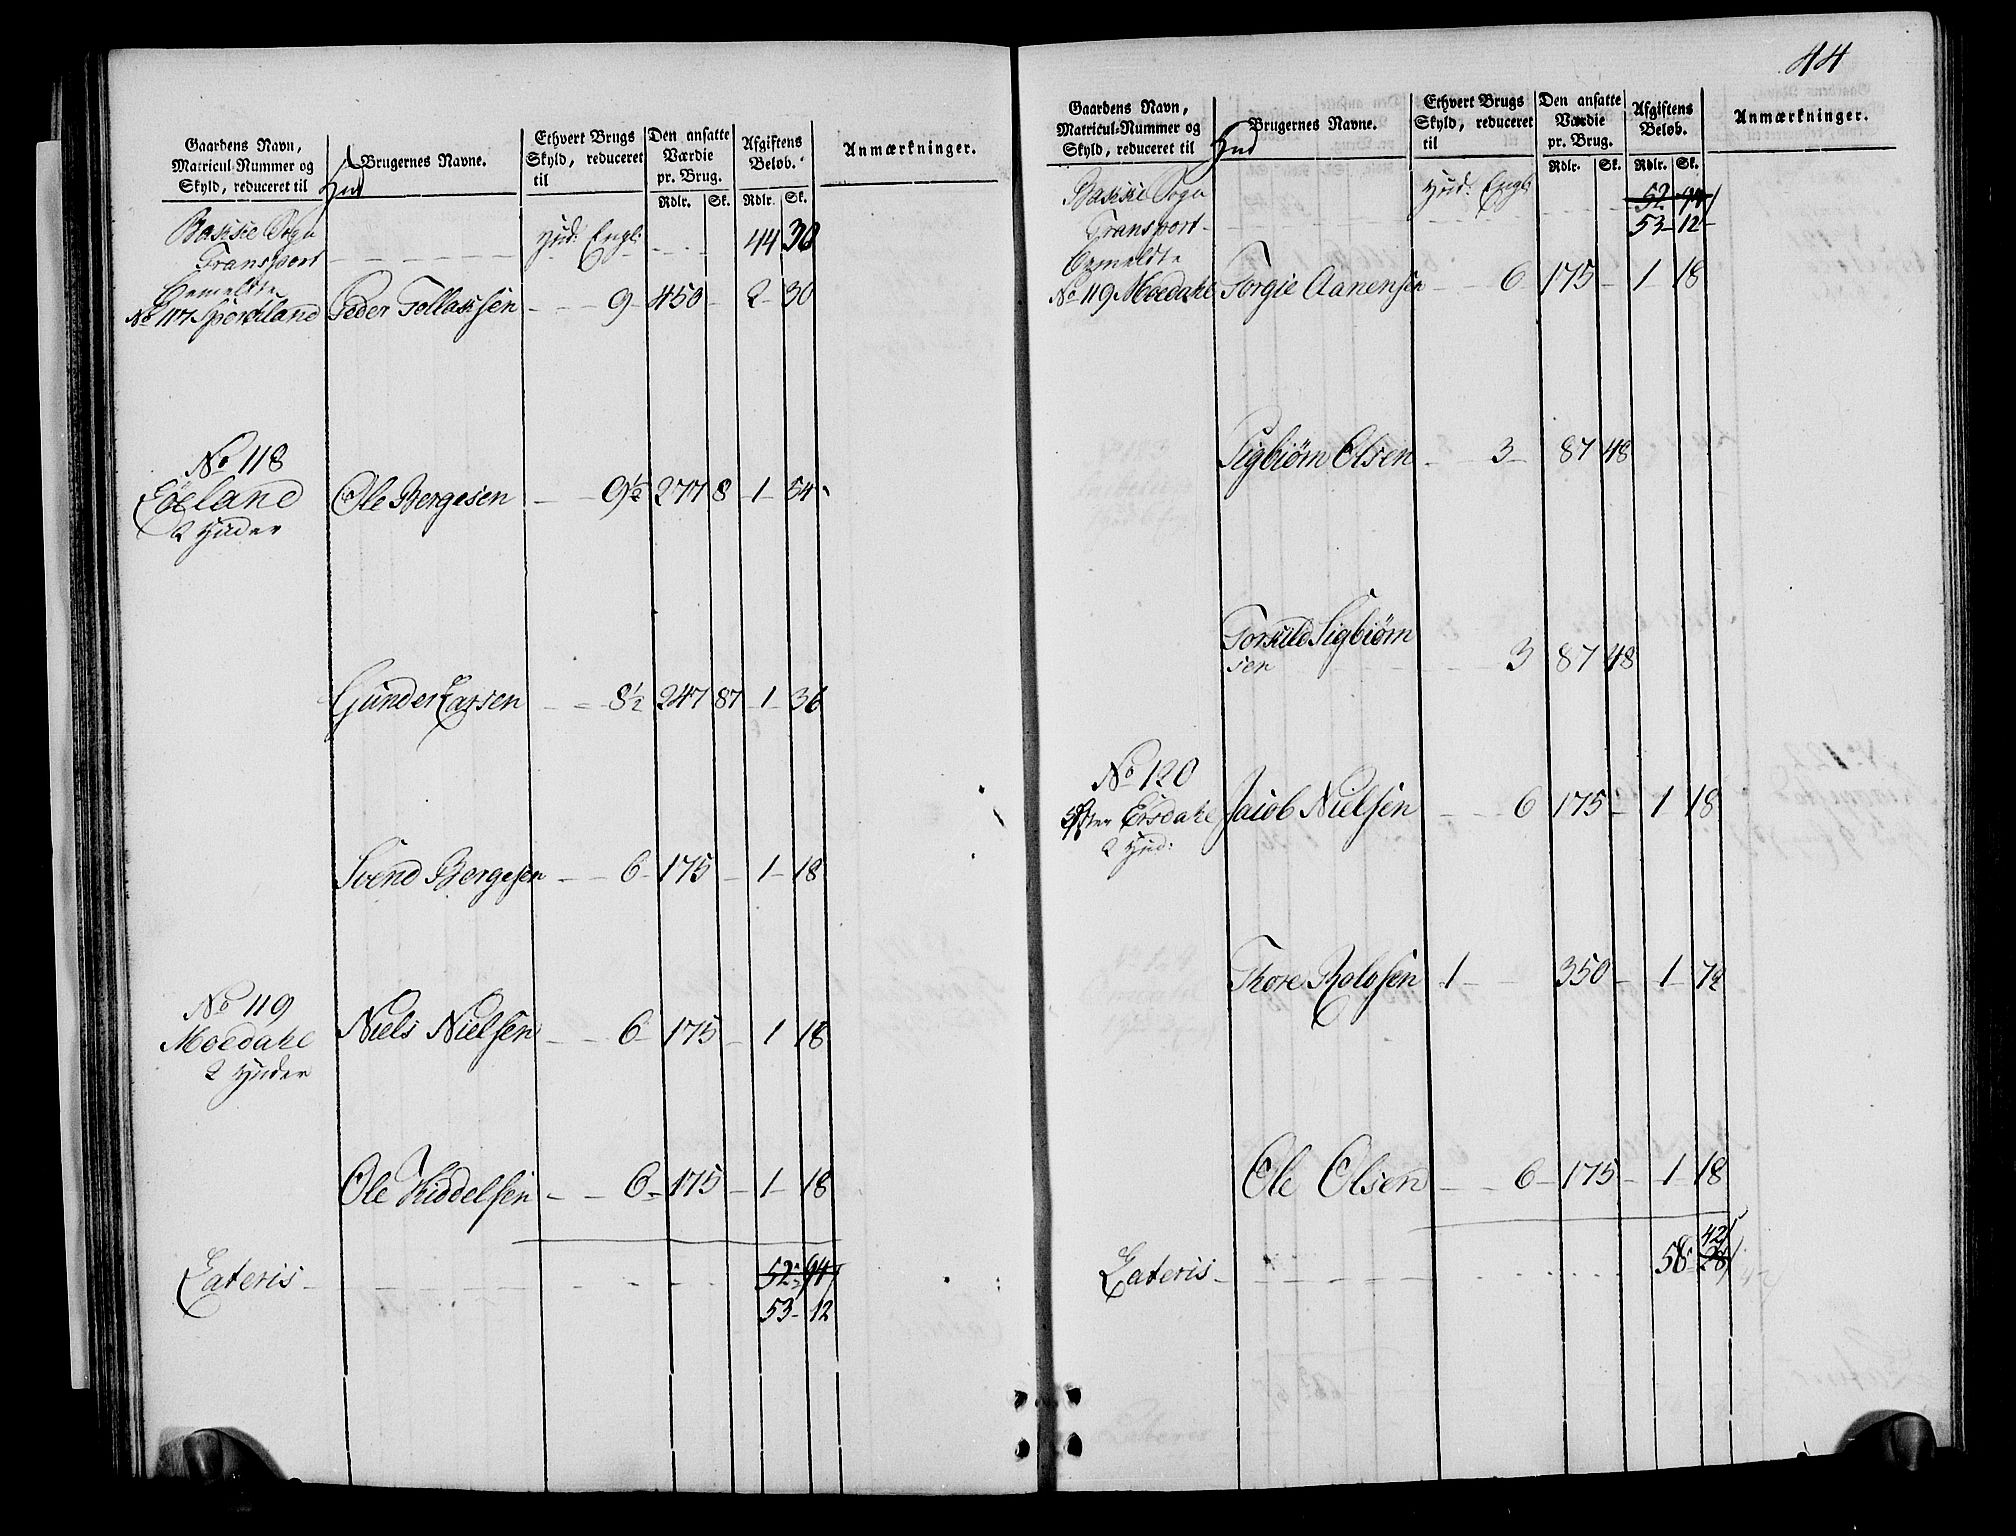 Gaardens Navn, Matricul-Nummer og Skyld, reduceret til Hud
Brugernes Navne.
Ethvert Brugs Skyld, reduceret til
Den ansatte Værdie pr. Brug.
Afgiftens Beløb.
Anmærkninger.
Rdlr. Sk. Rdlr. Sk.
Bakkie Sogn Hud: Engl:
Transport 44 30
bemeldte
No 117 Peder Tollaksen 9 450 2 30
No 118
Eÿeland Ole Bergesen 9½ 277 8 1 54
2 Huder
Gunder Larsen 8½ 247 87 1 36
Svend Bergesen 6 175 1 18
No 119
Moedahl Niels Nielsen 6 175 1 18
2 Huder
Ole Kiddelsen 6 175 1 18
Lateris 52 94
53 12
44
Gaardens Navn, Matricul-Nummer og Skyld, reduceret til Hud
Brugernes Navne.
Ethvert Brugs Skyld, reduceret til
Den ansatte Værdie pr. Brug.
Afgiftens Beløb.
Anmærkninger.
Rdlr. Sk. Rdlr. Sk.
Bakkie Sogn Hud: Engl: 52 94
Transport 53 12
bemeldte
No 119 Moedahl Torgie Aanensen 6 175 1 18
Sigbiørn Olsen 3 87 48
Torkild Sigbiørn
sen 3 87 48
No 120
Øster Eÿsdahl Jacob Nielsen 6 175 1 18
2 Hud:
Thore Rolvsen 1 350 1 72
Ole Olsen 6 175 1 18
42
Lateris 58 28